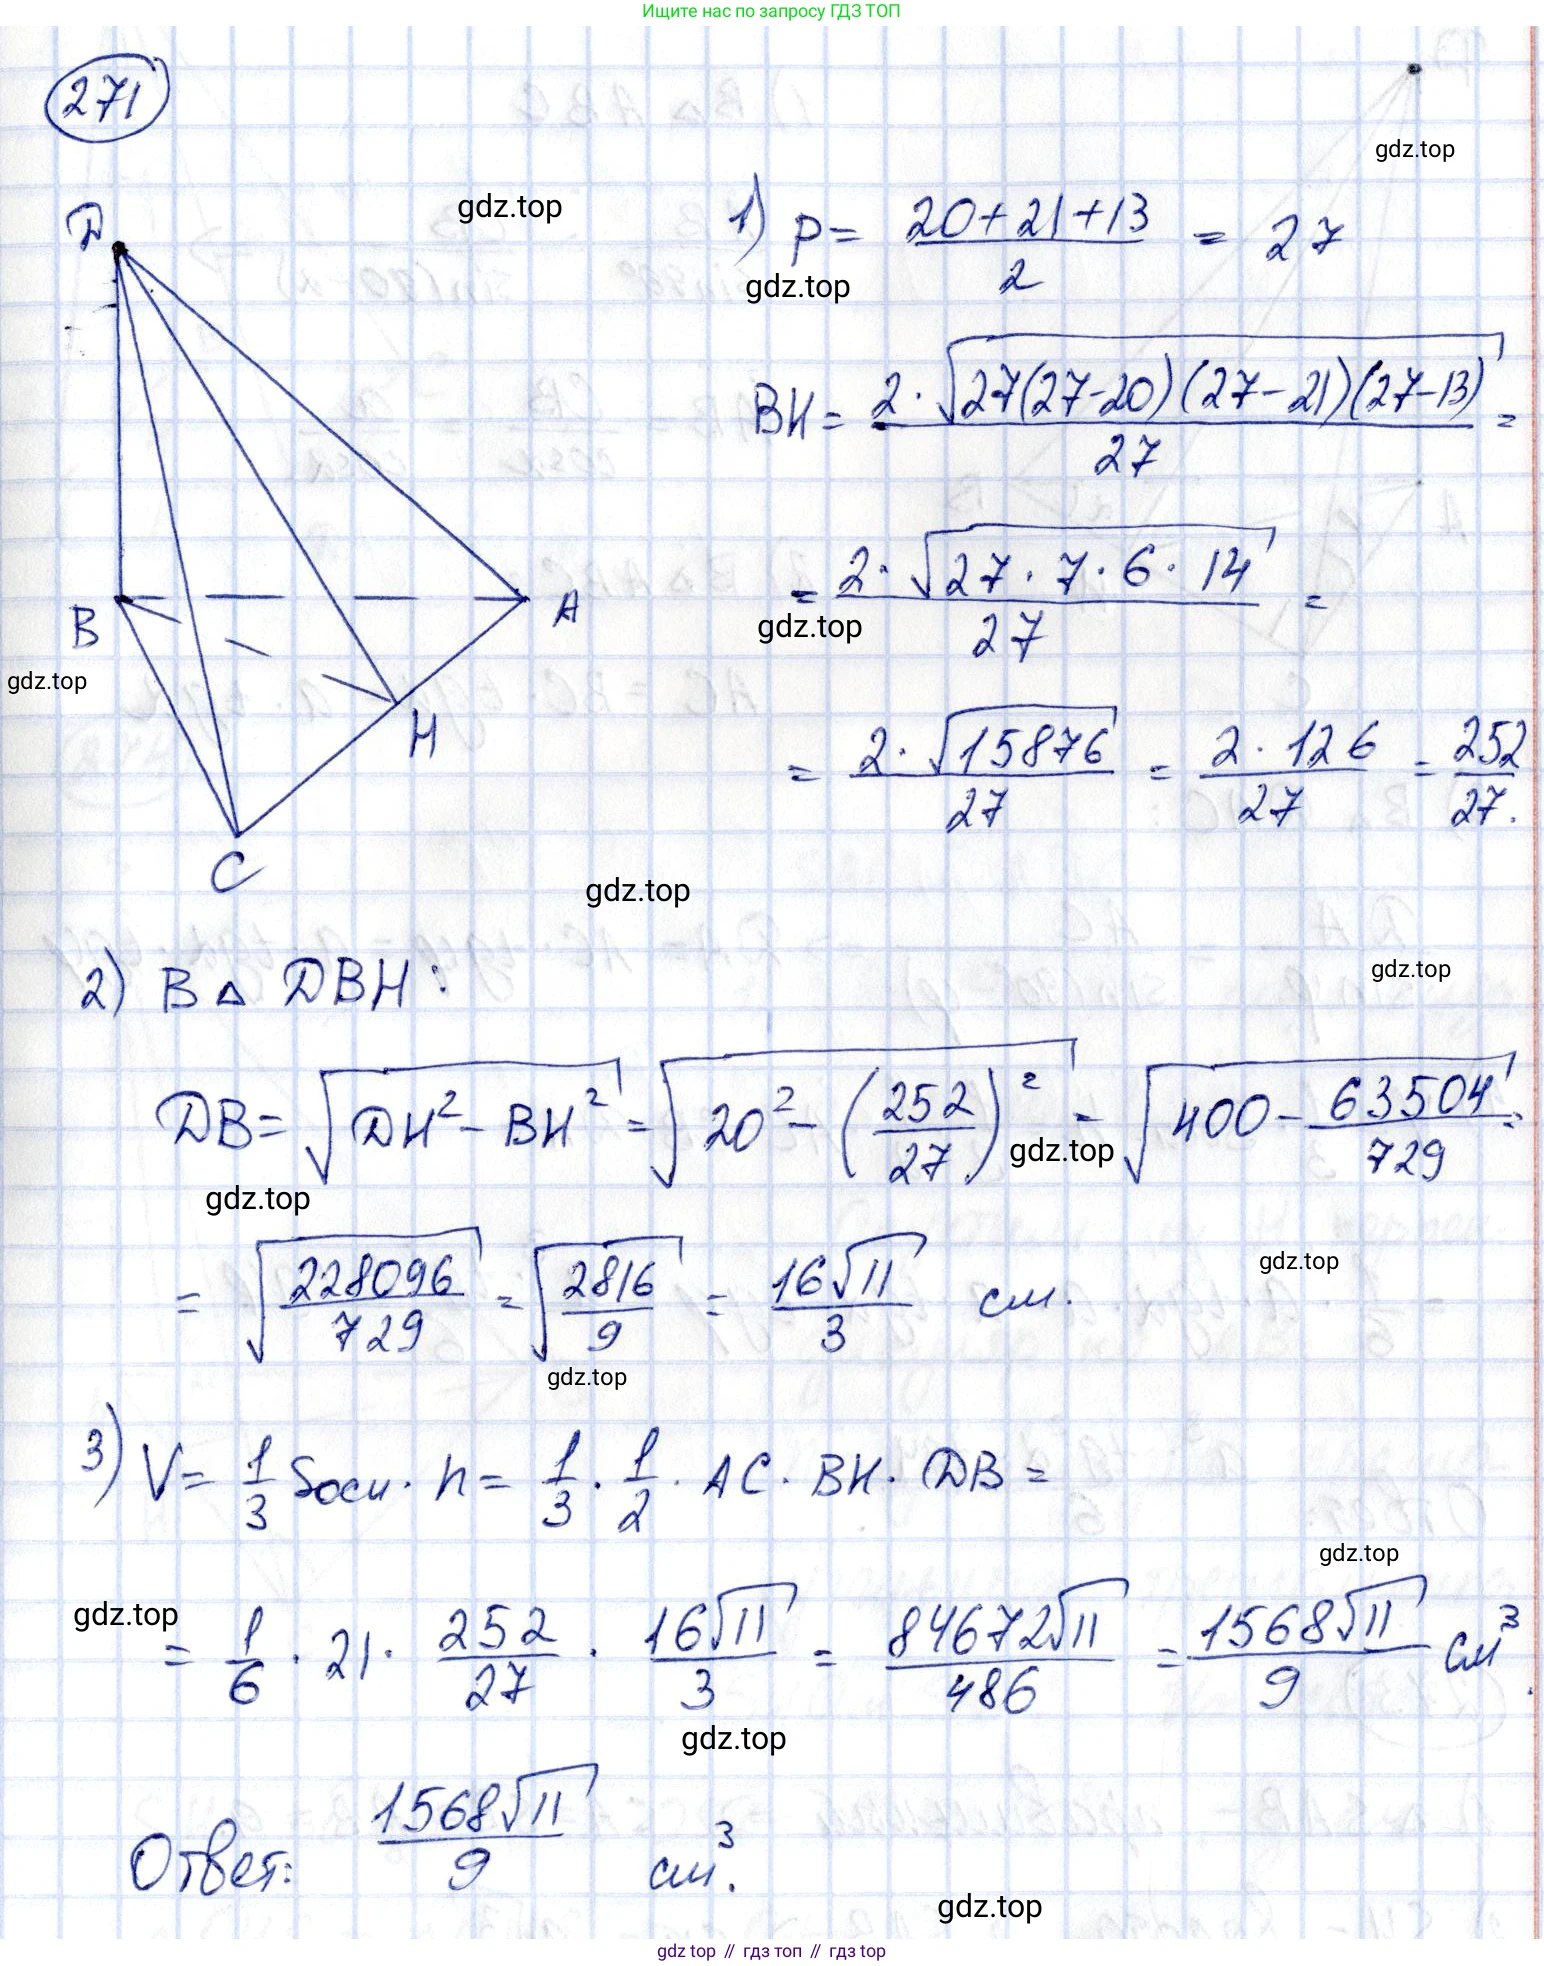 Ищите нас по запросу ГДЗ ТОП
271
gdz.top
gdz.top
1) p = (20+21+13)/2 = 27
gdz.top
BH = (2·√(27(27-20)(27-21)(27-13)))/27 =
= (2·√(27·7·6·14))/27 =
gdz.top
= (2·√15876)/27 = (2·126)/27 = 252/27.
D
B
A
H
C
gdz.top
gdz.top
2) В △ DBH:
gdz.top
DB = √(DH² - BH²) = √(20² - (252/27)²) = √(400 - 63504/729) =
gdz.top
gdz.top
= √(228096/729) = √(2816/9) = 16√11/3 см.
gdz.top
gdz.top
3) V = 1/3 Sосн · h = 1/3 · 1/2 · AC · BH · DB =
gdz.top
gdz.top
= 1/6 · 21 · 252/27 · 16√11/3 = 84672√11/486 = 1568√11/9 см³.
gdz.top
Ответ: 1568√11/9 см³.
gdz.top
gdz top // гдз топ // gdz top